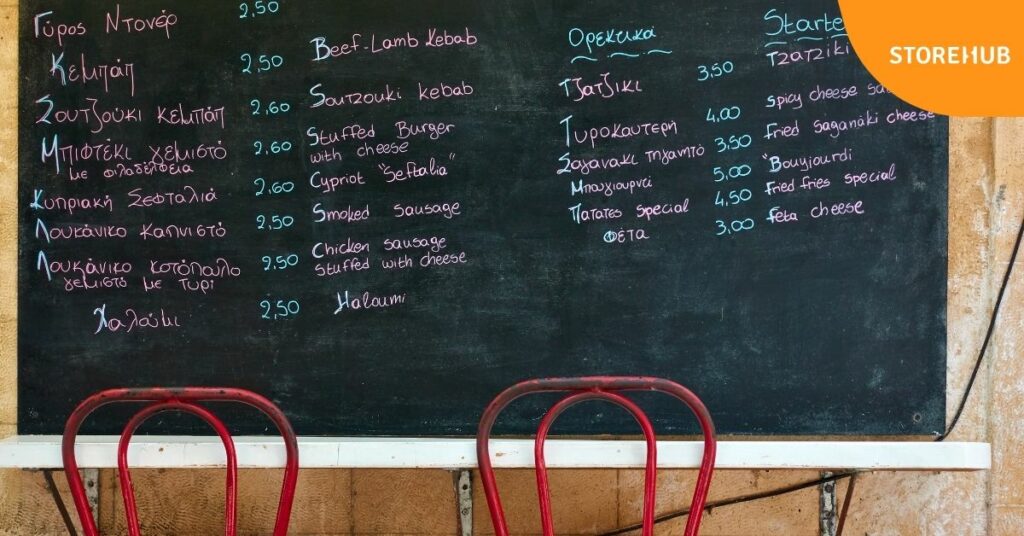 Γύρος Ντονέρ 2,50
Κεμπάπ 2,50 Beef-Lamb Kebab
Σουτζούκι κεμπάπ 2,60 Soutzouki kebab
Μπιφτέκι γεμιστό 2,60 Stuffed Burger
με φιλαδέλφεια with cheese
Κυπριακή Σεφταλιά 2,60 Cypriot "Seftalia"
Λουκάνικο καπνιστό 2,50 Smoked sausage
Λουκάνικο κοτόπουλο 2,50 Chicken sausage
γεμιστό με τυρί stuffed with cheese
Χαλούμι 2,50 Haloumi
Ορεκτικά
Τζατζίκι 3,50 Tzatziki
Τυροκαυτερή 4,00 spicy cheese
Σαγανάκι τηγανητό 3,50 fried saganáki cheese
Μπουγιουρντί 5,00 "Bouyjourdi
Πατάτες special 4,50 fried fries special
Φέτα 3,00 feta cheese
STOREHUB